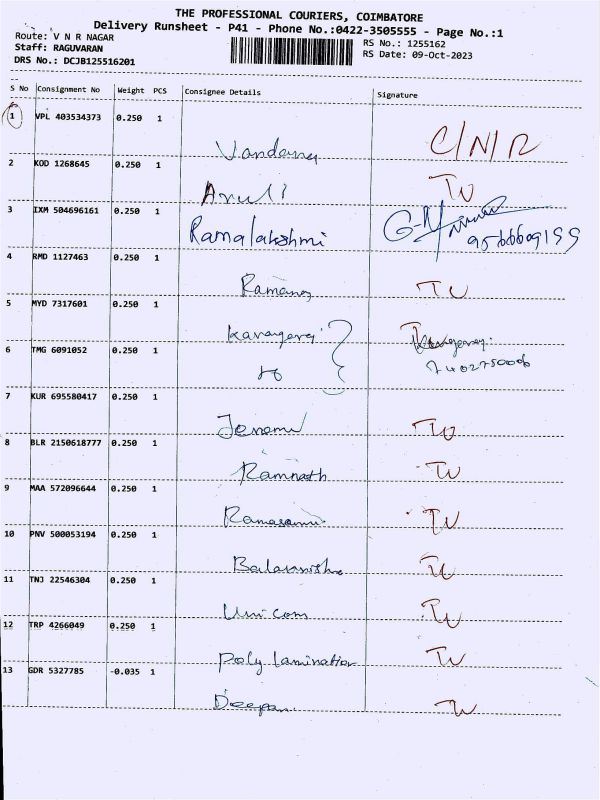 THE PROFESSIONAL COURIERS, COIMBATORE
Delivery Runsheet - P41 - Phone No.:0422-3505555 - Page No.:1
Route: V N R NAGAR RS No.: 1255162
Staff: RAGUVARAN RS Date: 09-Oct-2023
DRS No.: DCJB125516201
S No Consignment No Weight PCS Consignee Details Signature
1 VPL 403534373 0.250 1
Vandana C/N/R
2 KOD 1268645 0.250 1
Aruli TU
3 IXM 504696161 0.250 1
Ramalakshmi 9566609199
4 RMD 1127463 0.250 1
Ramana TU
5 MYD 7317601 0.250 1
6 TMG 6091052 0.250 1
7402750006
7 KUR 695580417 0.250 1
TU
8 BLR 2150618777 0.250 1
Ramnath TU
9 MAA 572096644 0.250 1
Ramasami TU
10 PNV 500053194 0.250 1
TU
11 TNJ 22546304 0.250 1
Unicom TU
12 TRP 4266049 0.250 1
Poly lamination TU
13 GDR 5327785 -0.035 1
Deepan TU